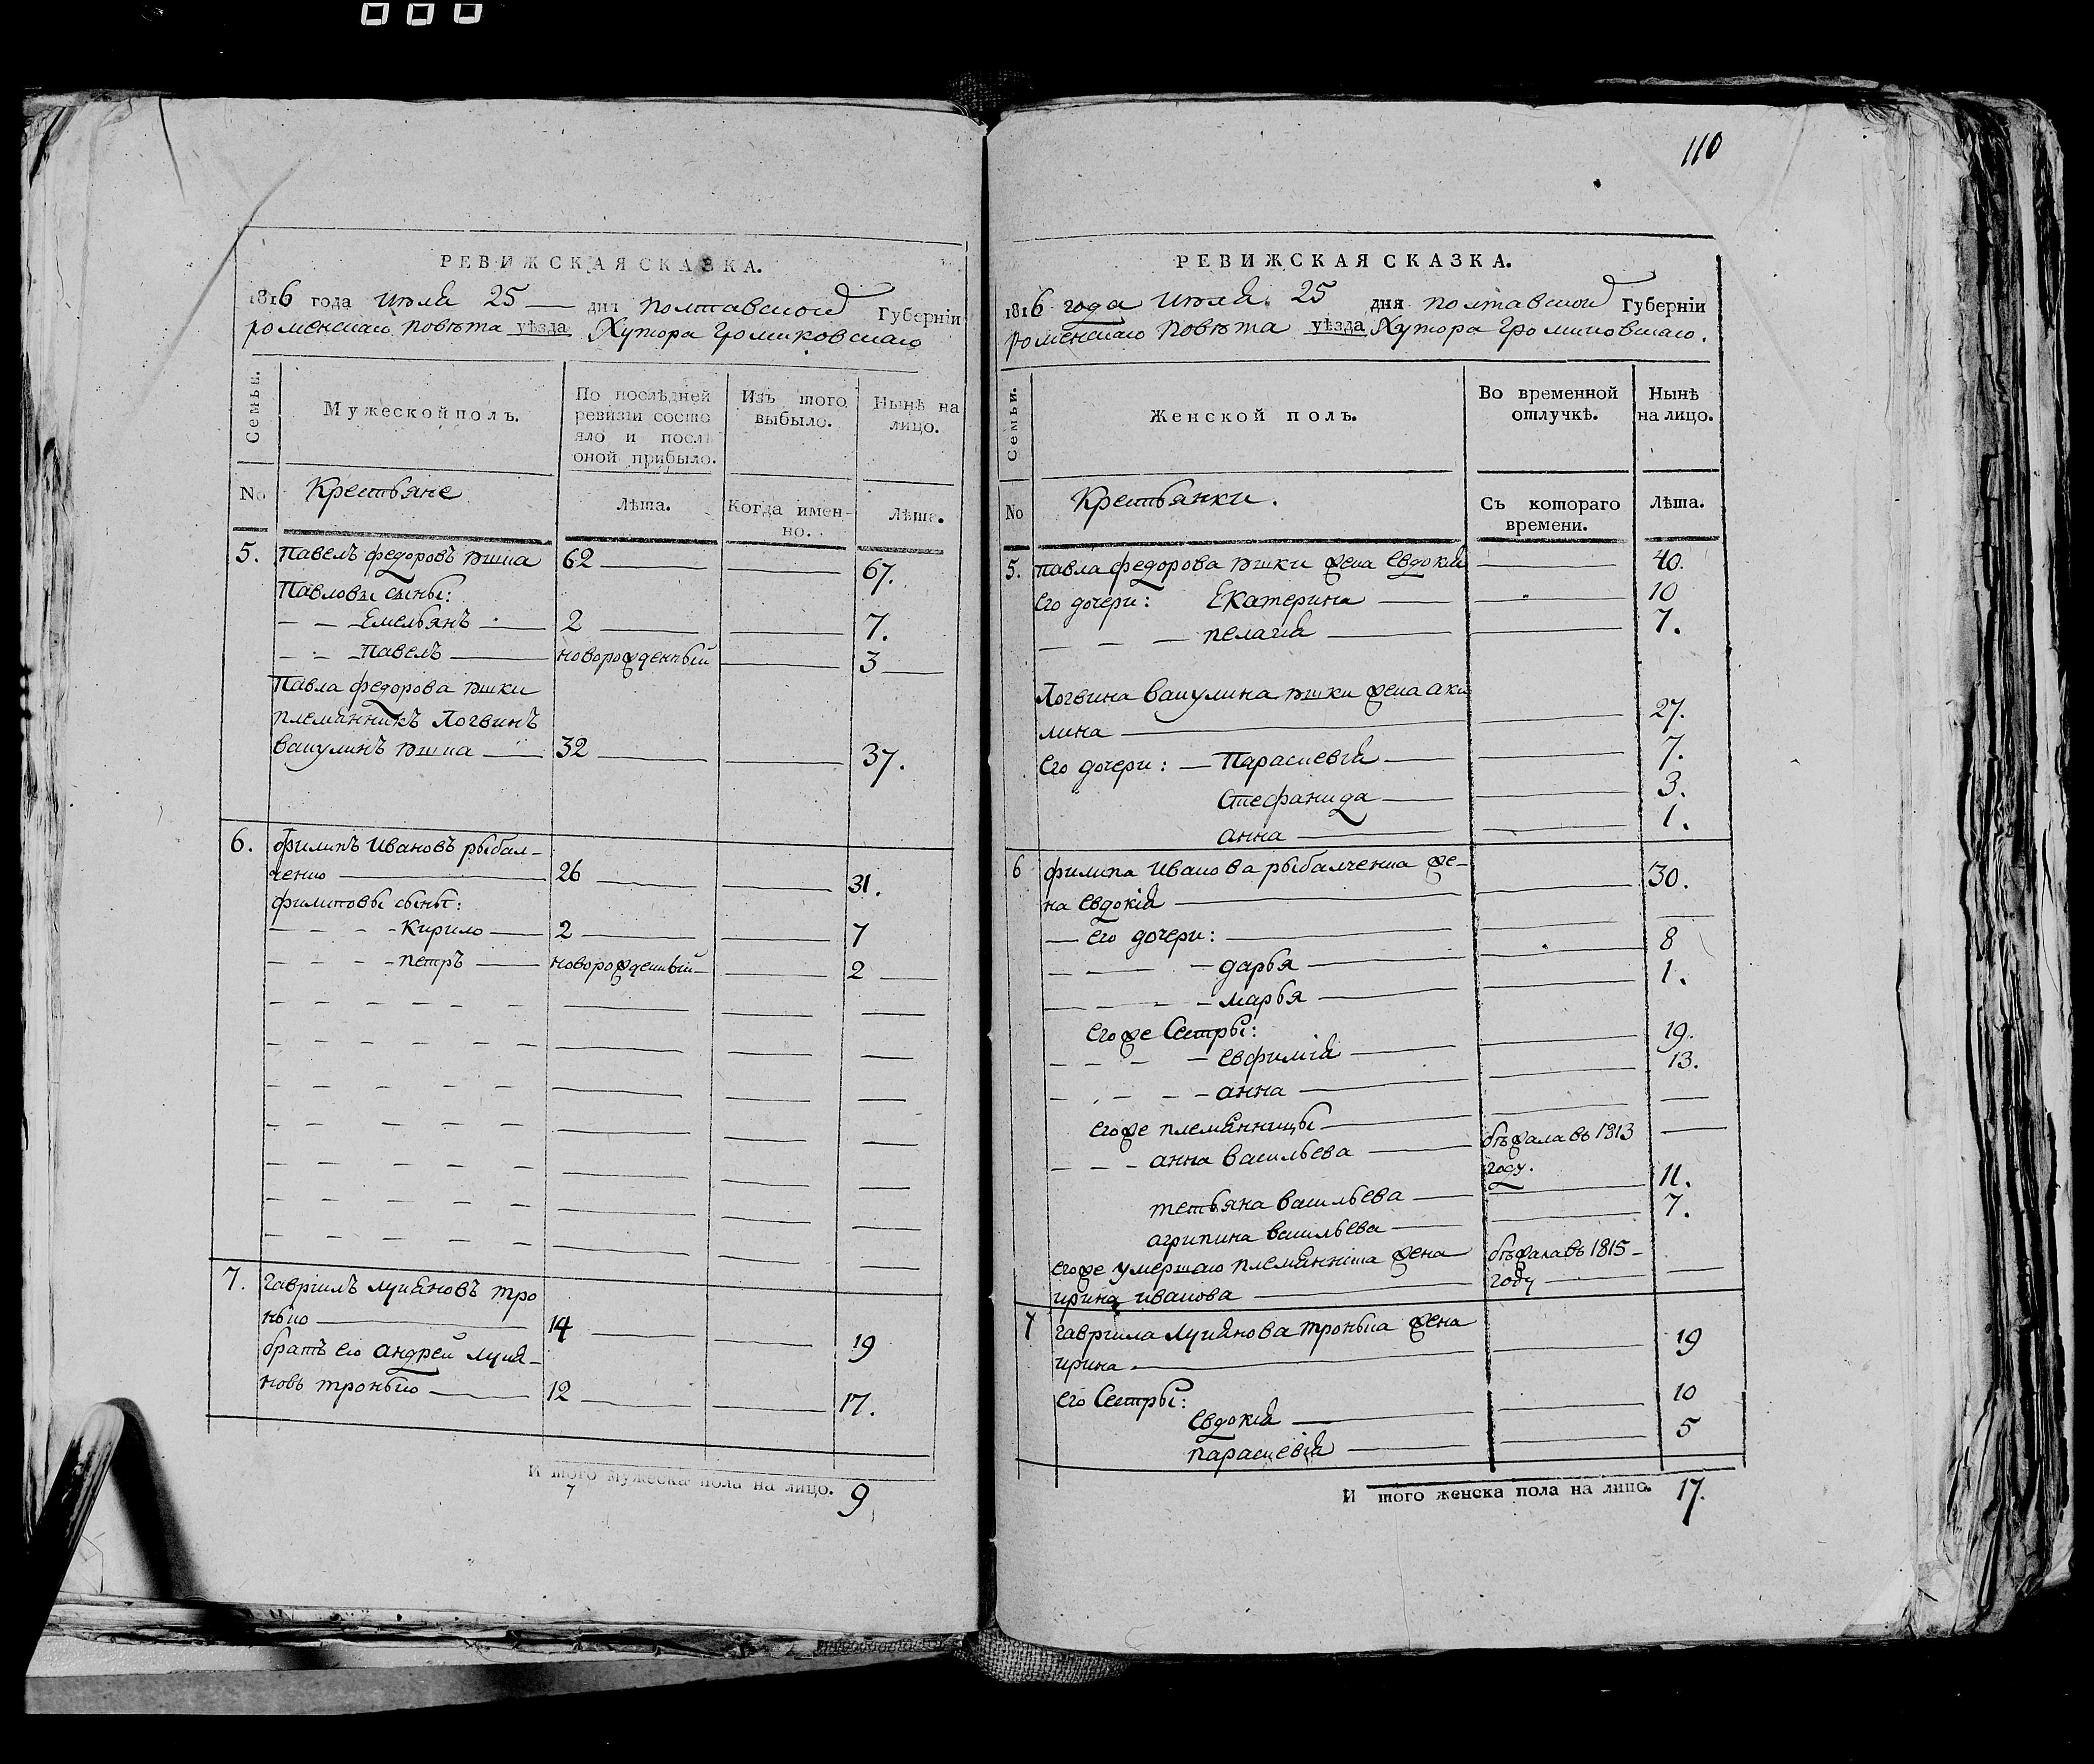 РЕВИЖСКАЯ СКАЗКА.
1816 года июля 25 дня полтавской Губерніи
роменскаго повѣта уѣзда Хутора Громиковскаго
Семьи.
Мужеской полъ.
По послѣдней ревизіи состояло и послѣ оной прибыло.
Изъ того выбыло.
Нынѣ на лицо.
No
Крестьяне
Лѣта.
Когда именно.
Лѣта.
5. Павелъ федоровъ 62 67.
Павловы сыны:
Емельянъ 2 7.
Павелъ новорожденный 3
Павла федорова
племянникъ Логвинъ
вакулинъ 32 37.
6. Филипъ Ивановъ рыбал-
ченко 26 31.
филиповы сыны:
Кирило 2 7
петръ новорожденный 2
7. гаврiилъ лукяновъ тро
нько 14 19
братъ его андрей лукя-
новъ тронько 12 17.
И того мужеска пола на лицо. 9
110
РЕВИЖСКАЯ СКАЗКА.
1816 года июля 25 дня полтавской Губерніи
роменскаго повѣта уѣзда Хутора Громиковскаго.
Семьи.
Женской полъ.
Во временной отлучкѣ.
Нынѣ на лицо.
No
Крестьянки.
Съ котораго времени.
Лѣта.
5. павла федорова жена Евдокія 40.
его дочери: Екатерина 10
пелагія 7.
Логвина вакулина жена аку
лина 27.
его дочери: Параскевія 7.
Стефанида 3.
анна 1.
6 филипа ивановa рыбалченка же-
на евдокія 30.
его дочери:
дарья 8
марья 1.
его же Сестры:
евфимія 19.
анна 13.
его же племянницы
анна васильева бѣжала въ 1813
году.
тетьяна васильева 11.
агрипина васильева 7.
его же умершаго племянніка жена бѣжала въ 1815-
ирина иванова году
7 гавриила лукянова тронька жена
ирина 19
его Сестры:
евдокія 10
параскевія 5
И того женска пола на лицо. 17.